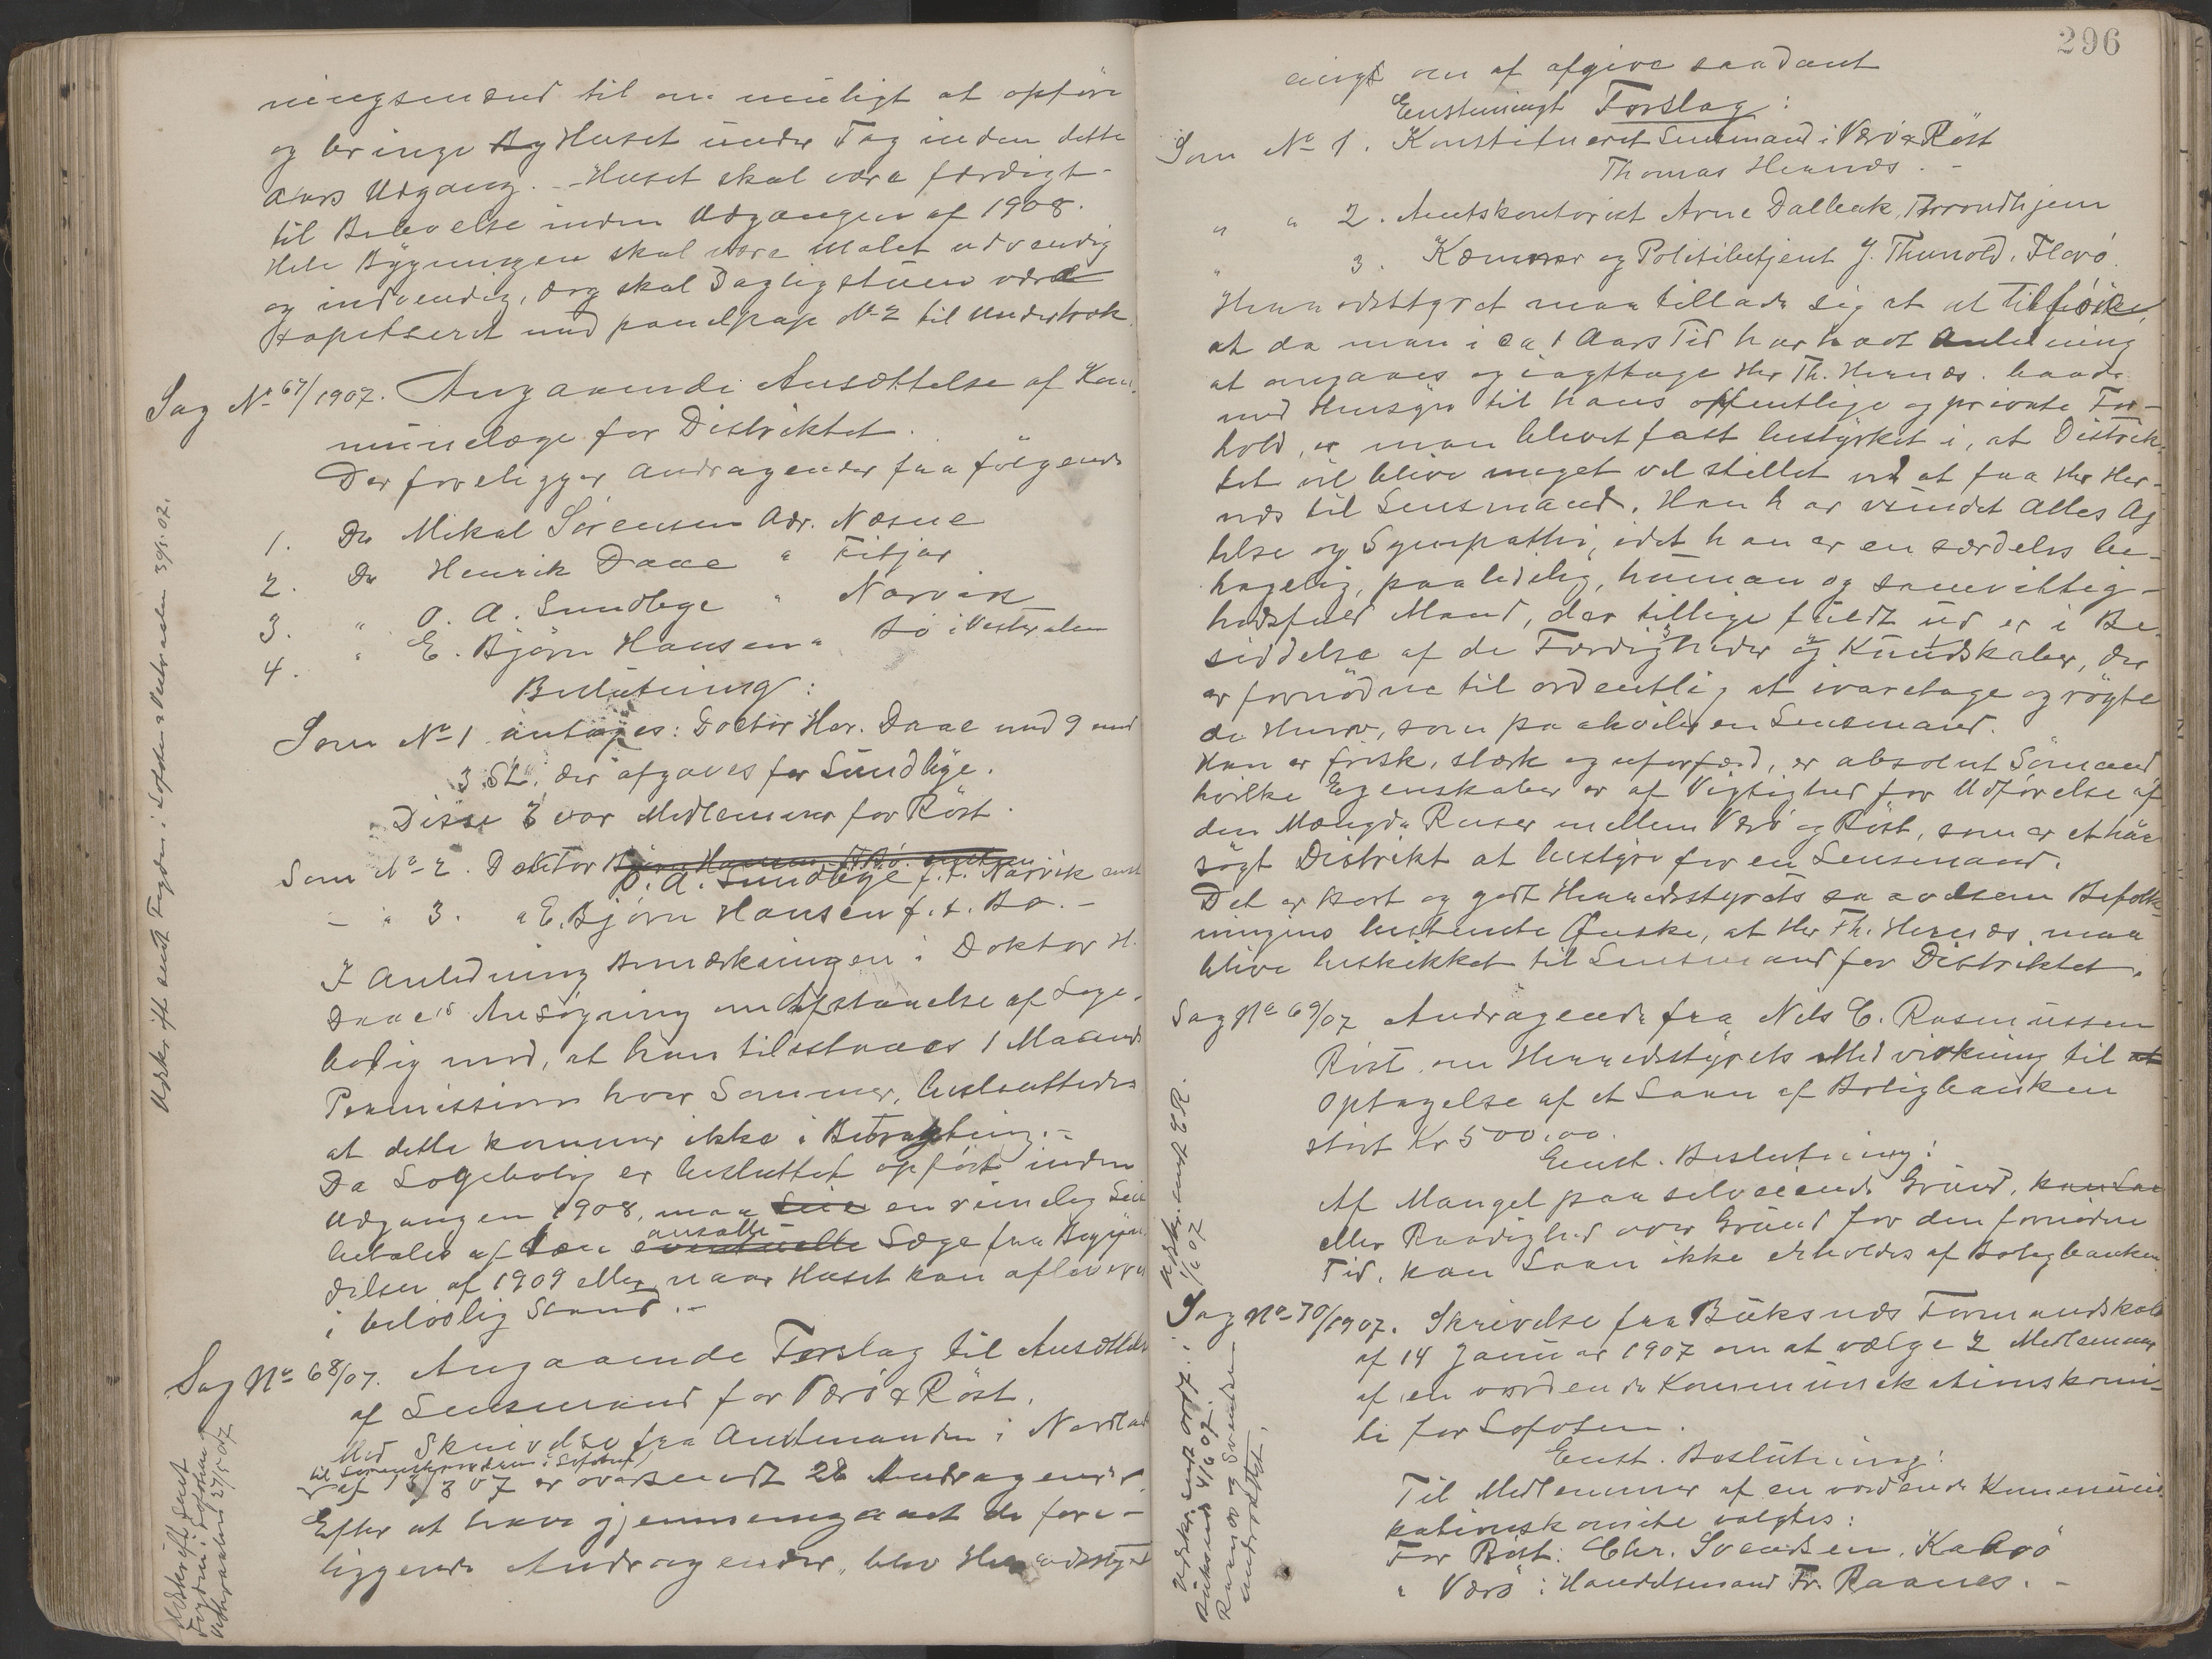 ningsmænd til om muligt at opføre
og bringe By Huset under Tag inden dette
Aars Udgang. - Huset skal være færdigt
til Beboelse inden Udgangen af 1908.
Hele Bygningen skal være malet udvendig
og indvendig, dog skal Dagligstuen være
tapetseret med panelpap No 2 til Undertræk.
Sag No 67/1907. Angaaende Ansættelse af Kom-
munelæge for Distriktet.
Der foreligger Andragender fra følgende
1. Dr Mikal Sörensen Adr. Næsne
2. Dr Henrik Daae " Fitjar
3. " O. A. Sundbye " Narvik
4. " E. Bjørn Hansen " Bö i Vesteraalen
Beslutning:
Som No 1 antoges: Doctor Hr. Daae med 9 mod
3 St. der afgaves for Sundbye.
Disse 3 var Medlemmer for Röst.
Som No 2. Doktor Bjørn Hansen, Bö
O. A. Sundbye f. t. Narvik enst
- " 3. " E. Bjørn Hansen f. t. Bø. -
I Anledning Bemærkningen i Doktor H.
Daae's Ansøgning om Afstaaelse af Læge-
bolig med, at han tilstaaes 1 Maaneds
Permission hver Sommer, besluttedes
at dette kommer ikke i Betragtning. -
Da Lægebolig er besluttet opført inden
Udgangen 1908, maa Leie en rimelig Leie
betales af den eventuelle ansatte Læge fra Begyn-
delsen af 1909 eller naar Huset kan afleveres
i beboelig Stand. -
Sag No 68/07. Angaaende Forslag til Ansættelse
af Lensmand for Værö & Röst.
Med Skrivelse fra Amtmanden i Nordland
til Sorenskriveren i Lofoten
af 3/3 07 er oversendt 28 Andragender.
Efter at have gjennemgaaet de fore-
liggende Andragender, blev Herredsstyret
Udskrift sendt Fogden i Lofoten & Vesteraalen 29/5. 07.
Udskrift sendt
Fogden i Lofoten &
Vesteraalen 27/5 07
296
enigt om at afgive saadant
Enstemmigt Forslag:
Som No 1. Konstitueret Lensmand i Værö & Röst
Thomas Hernæs. -
" " 2. Amtskontorist Arne Dalbak, Throndhjem
" 3. Kæmner og Politibetjent J. Thunold, Florö.
Herredsstyret maa tillade sig at at tilføie,
at da man i ca 1 Aars Tid har havt Anledning
at omgaaes og iagttage Hr. Th. Hernæs. baade
med Hensyn til hans offentlige og private For-
hold, er man blevet fast bestyrket i, at Distrik-
tet vil blive meget vel stillet ved at faa Hr Her-
næs til Lensmand. Han har vundet Alles Ag
telse og Sympathi, idet han er en særdeles be-
hagelig, paalidelig, human og samvittig-
hedsfuld Mand, der tillige fuldt ud er i Be-
siddelse af de Færdigheder og Kundskaber, der
er fornödne til ordentlig at ivaretage og røgte
de Hverv, som paahviler en Lensmand.
Han er frisk, stærk og uforfærd, er absolut Sömand
hvilke Egenskaber er af Vigtighed for Udførelse af
den Mængde Reiser mellem Værö og Röst, som er et haar
søgt Distrikt at bestyre for en Lensmand.
Det er kort og godt Herredsstyrets saavelsom Befolk-
ningens bestemte Ønske, at Hr Th. Hernæs maa
blive beskikket til Lensmand for Distriktet.
Sag No 69/07 Andragende fra Nils C. Rasmussen
Röst om Herredsstyrets Medvirkning til at
Optagelse af et Laan af Boligbanken
stort Kr 500,00.
Enst. Beslutning:
Af Mangel paa selveiende Grund, kan Laa
eller Raadighed over Grund for den fornødne
Tid, kan Laan ikke erholdes af Boligbanken.
Sag No 70/1907. Skrivelse fra Buksnæs Formandskab
af 14 Januar 1907 om at vælge 2 Medlemmer
af en vordende Kommunikationskomi-
te for Lofoten.
Enst. Beslutning:
Til Medlemmer af en vordende Kommuni-
kationskomite valgtes:
For Röst: Chr. Svendsen, Kaarö
" Værö: Handelsmand Fr. Raanes. -
Udskr. sendt N.R.
1/6 07
Udskr. sendt Ordf. i
Buksnæs 4/6 07.
Raanes og Svendsen
underrettet.